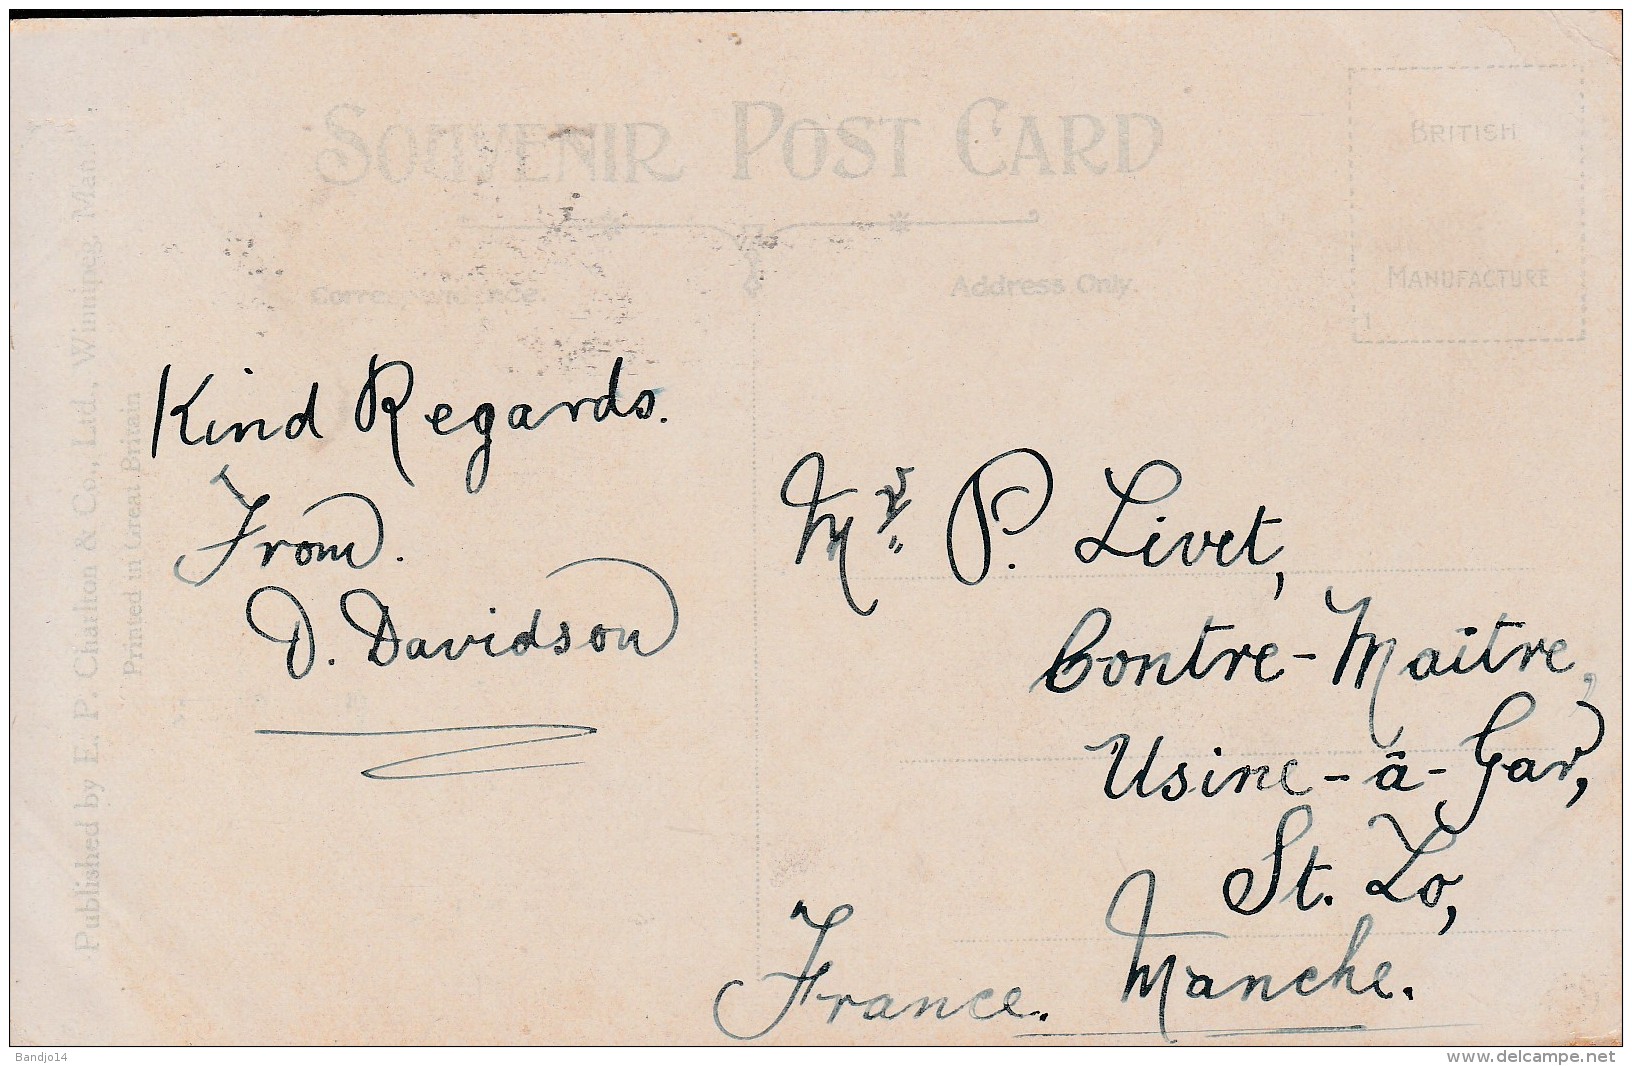 SOUVENIR POST CARD
BRITISH
MANUFACTURE
Correspondence.
Address Only.
Published by E. P. Charlton & Co., Ltd., Winnipeg, Man.
Printed in Great Britain
Kind Regards.
From.
D. Davidson
Mr. P. Livet,
Contre-Maître,
Usine-à-Gar,
St. Lo,
Manche.
France.
Bandjo14
www.delcampe.net